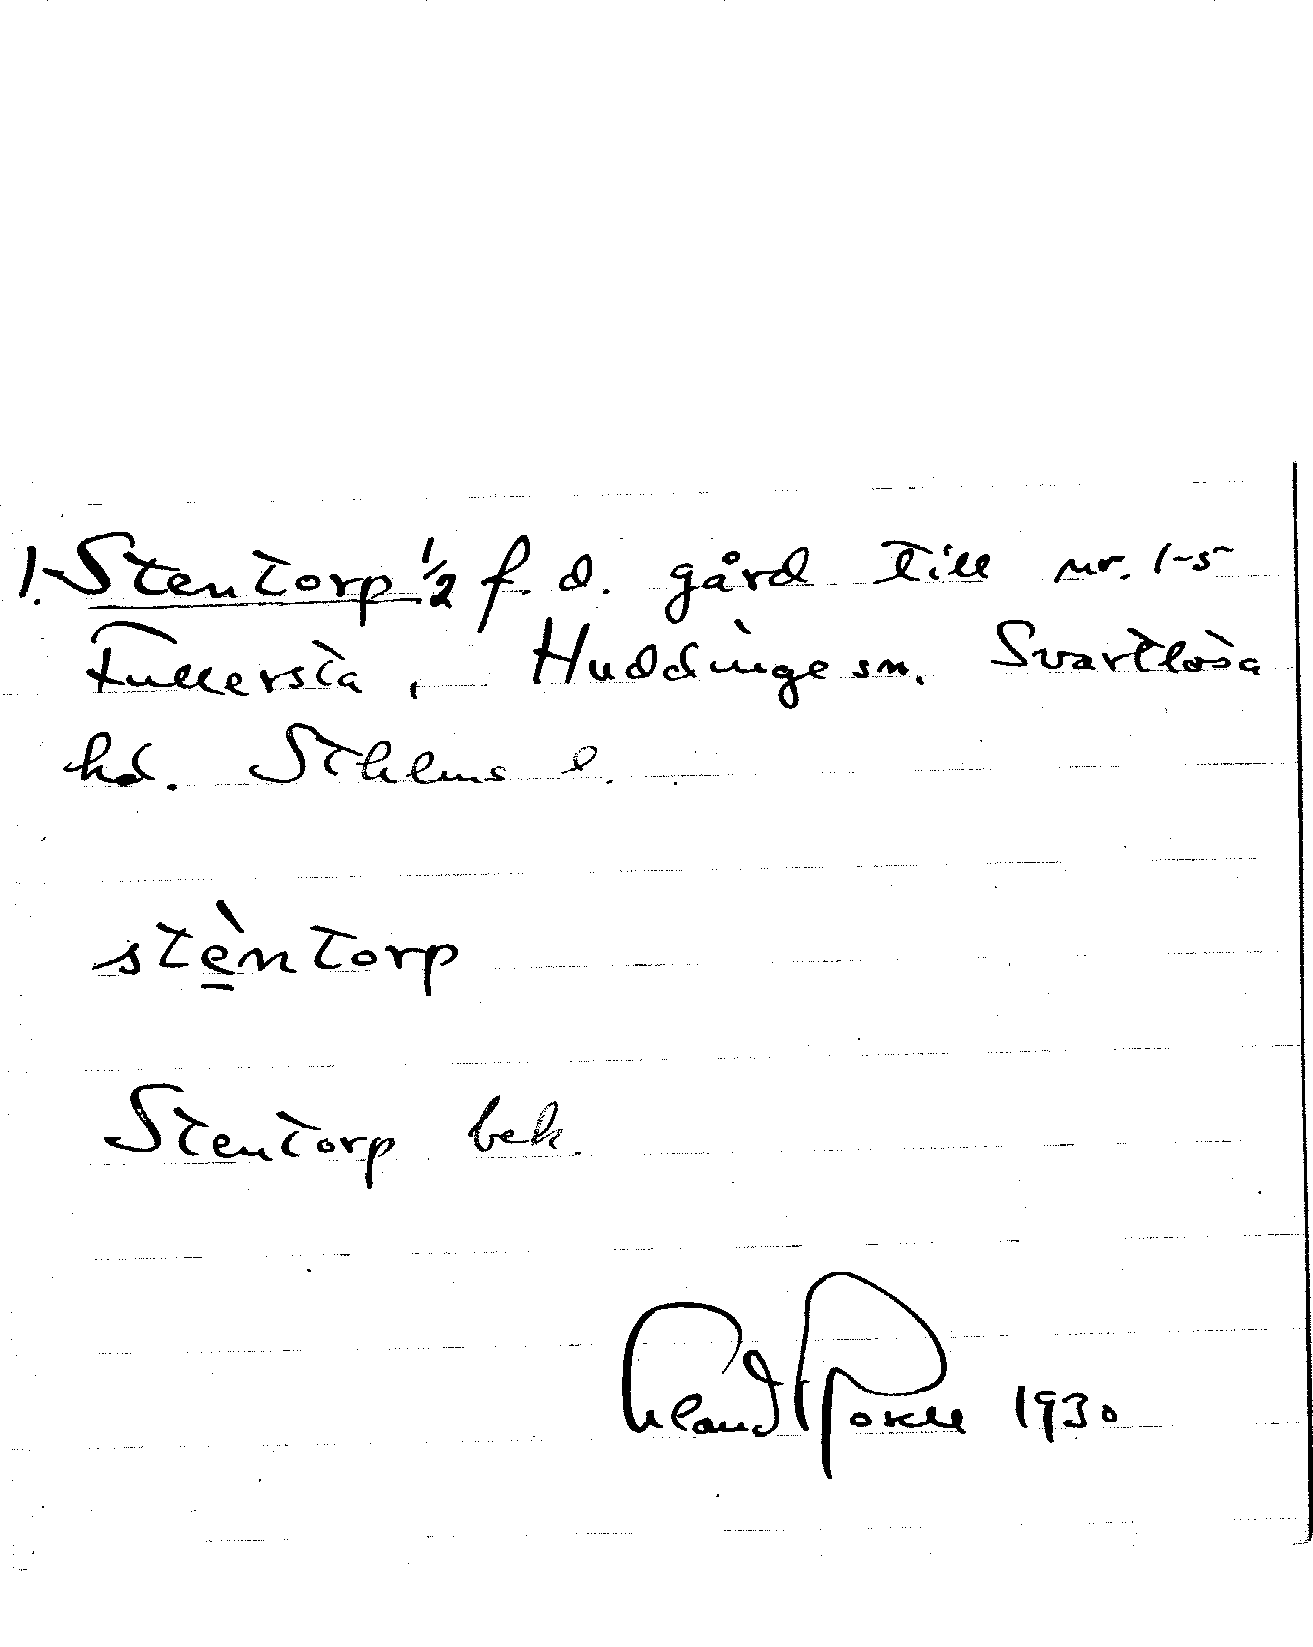 1. Stentorp 1/2 f. d. gård till nr. 1-5
Fullersta, Huddinge sn. Svartlösa
hd. Sthlms l.
stèntorp
Stentorp bek.
1930